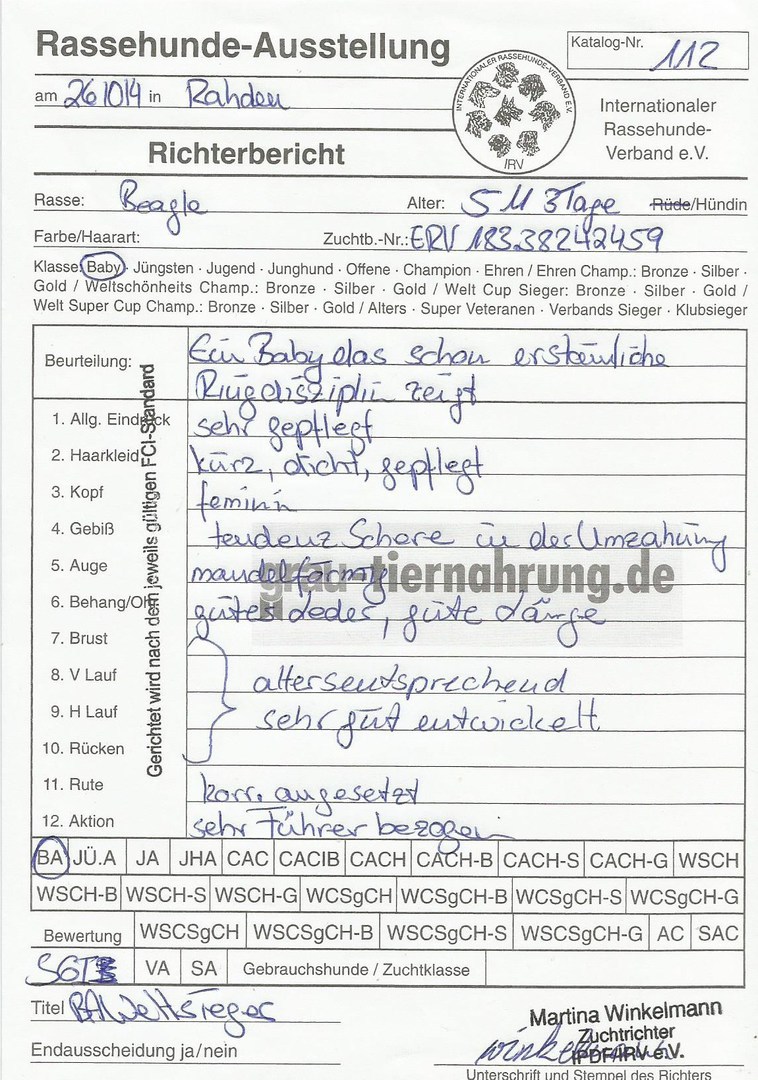 Rassehunde-Ausstellung
Katalog-Nr. 112
am 261014 in Rahden
INTERNATIONALER RASSEHUNDE-VERBAND E.V.
IRV
Internationaler
Rassehunde-
Verband e.V.
Richterbericht
Rasse: Beagle Alter: 5 M 3 Tage Rüde/Hündin
Farbe/Haarart: Zuchtb.-Nr.: ERV 18338242459
Klasse: Baby · Jüngsten · Jugend · Junghund · Offene · Champion · Ehren / Ehren Champ.: Bronze · Silber ·
Gold / Weltschönheits Champ.: Bronze · Silber · Gold / Welt Cup Sieger: Bronze · Silber · Gold /
Welt Super Cup Champ.: Bronze · Silber · Gold / Alters · Super Veteranen · Verbands Sieger · Klubsieger
Beurteilung: Ein Baby das schon erstaunliche
Ringdisziplin zeigt
1. Allg. Eindruck sehr gepflegt
2. Haarkleid kurz, dicht, gepflegt
3. Kopf feminin
4. Gebiß tendenz Schere in der Umzahnung
5. Auge mandelförmig
grau-tiernahrung.de
6. Behang/Ohr gutes Leder, gute Länge
7. Brust
8. V Lauf altersentsprechend
9. H Lauf sehr gut entwickelt
10. Rücken
11. Rute korr. angesetzt
12. Aktion sehr Führer bezogen
Gerichtet wird nach dem jeweils gültigen FCI-Standard
BA JÜ.A JA JHA CAC CACIB CACH CACH-B CACH-S CACH-G WSCH
WSCH-B WSCH-S WSCH-G WCSgCH WCSgCH-B WCSgCH-S WCSgCH-G
Bewertung WSCSgCH WSCSgCH-B WSCSgCH-S WSCSgCH-G AC SAC
SG1 VA SA Gebrauchshunde / Zuchtklasse
Titel BA Weltsieger
Martina Winkelmann
Zuchtrichter
IPDF/IRV e.V.
Endausscheidung ja/nein
Unterschrift und Stempel des Richters